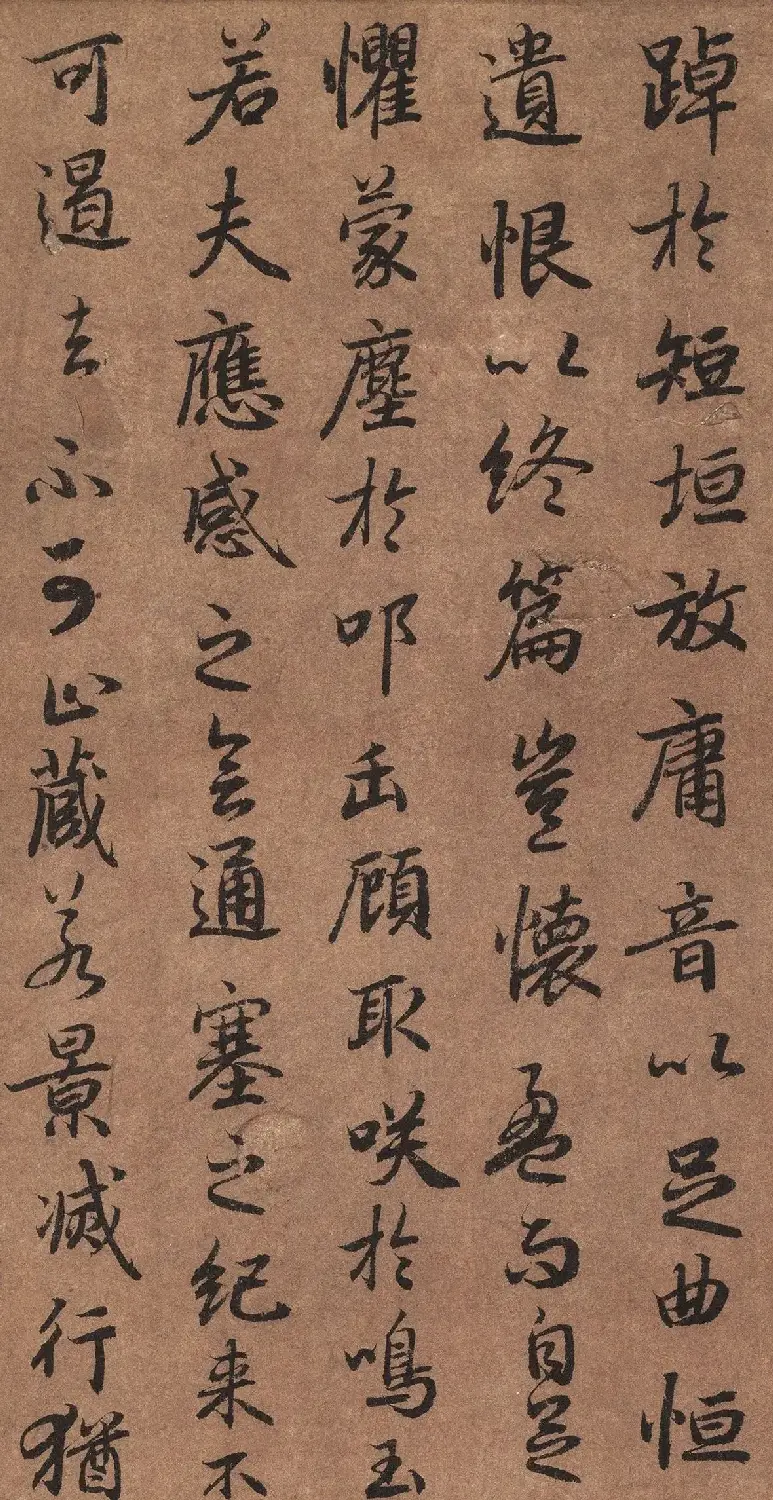 踔於短垣放庸音以足曲恒
遺恨以終篇豈懷盈而自足
懼蒙塵於叩缶顧取咲於鳴玉
若夫應感之會通塞之紀来不
可遏去不可止蔵若景滅行猶